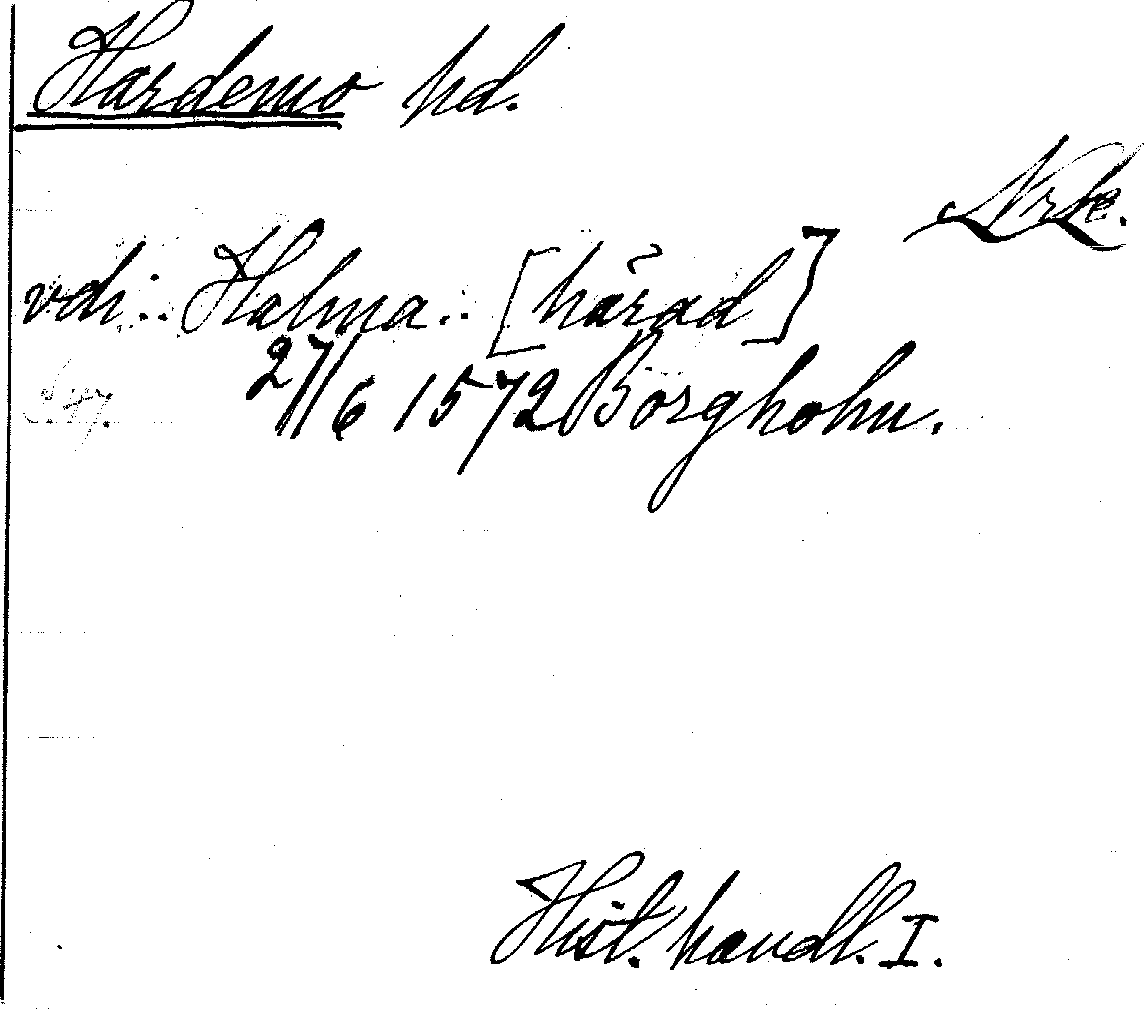 Hardemo hd.
Nrke.
vdi :. Halma .: [härad]
27/6 1572 Borgholm.
S. 47.
Hist. handl. I.